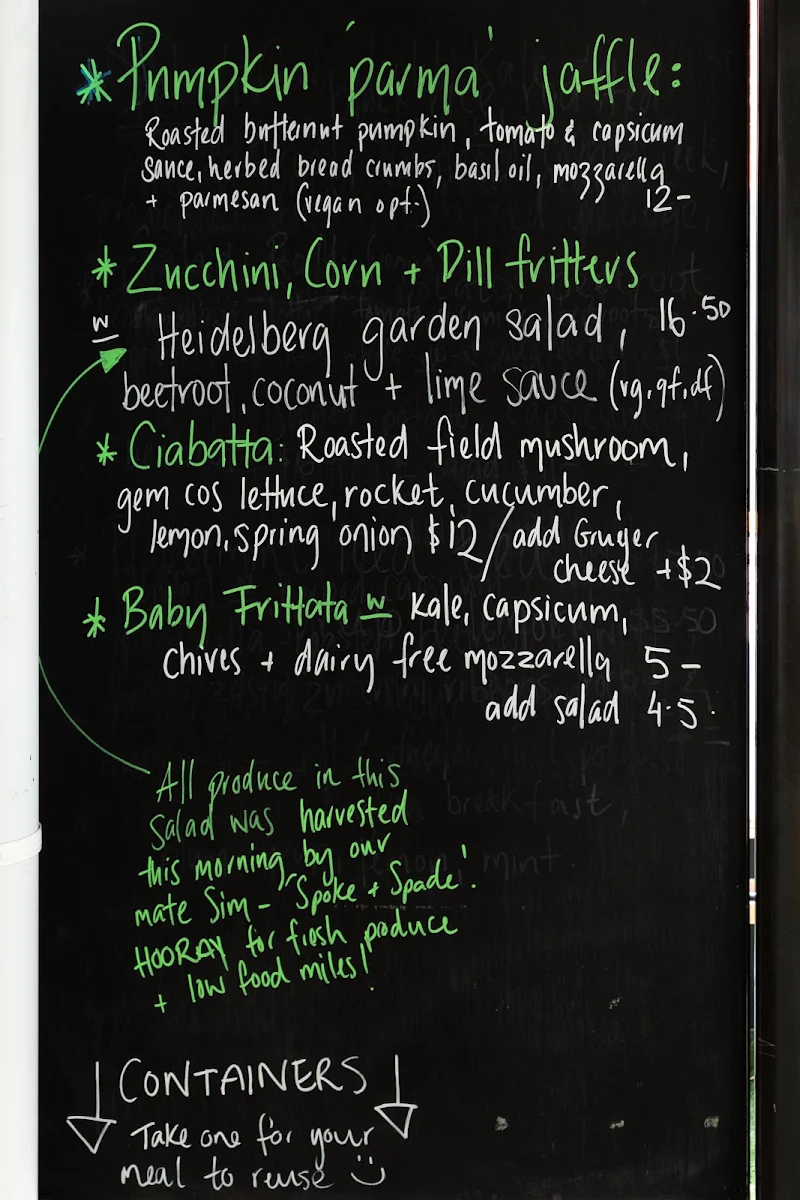 * Pumpkin 'parma' jaffle:
Roasted butternut pumpkin, tomato & capsicum
sauce, herbed bread crumbs, basil oil, mozzarella
+ parmesan (vegan opt.) 12-
* Zucchini, Corn + Dill fritters
w Heidelberg garden salad, 16.50
beetroot, coconut + lime sauce (vg, gf, df)
* Ciabatta: Roasted field mushroom,
gem cos lettuce, rocket, cucumber,
lemon, spring onion $12 / add Gruyer
cheese +$2
* Baby Frittata w kale, capsicum,
chives + dairy free mozzarella 5-
add salad 4.5.
All produce in this
salad was harvested
this morning by our
mate Sim - 'Spoke + Spade'.
HOORAY for fresh produce
+ low food miles!
CONTAINERS
Take one for your
meal to reuse